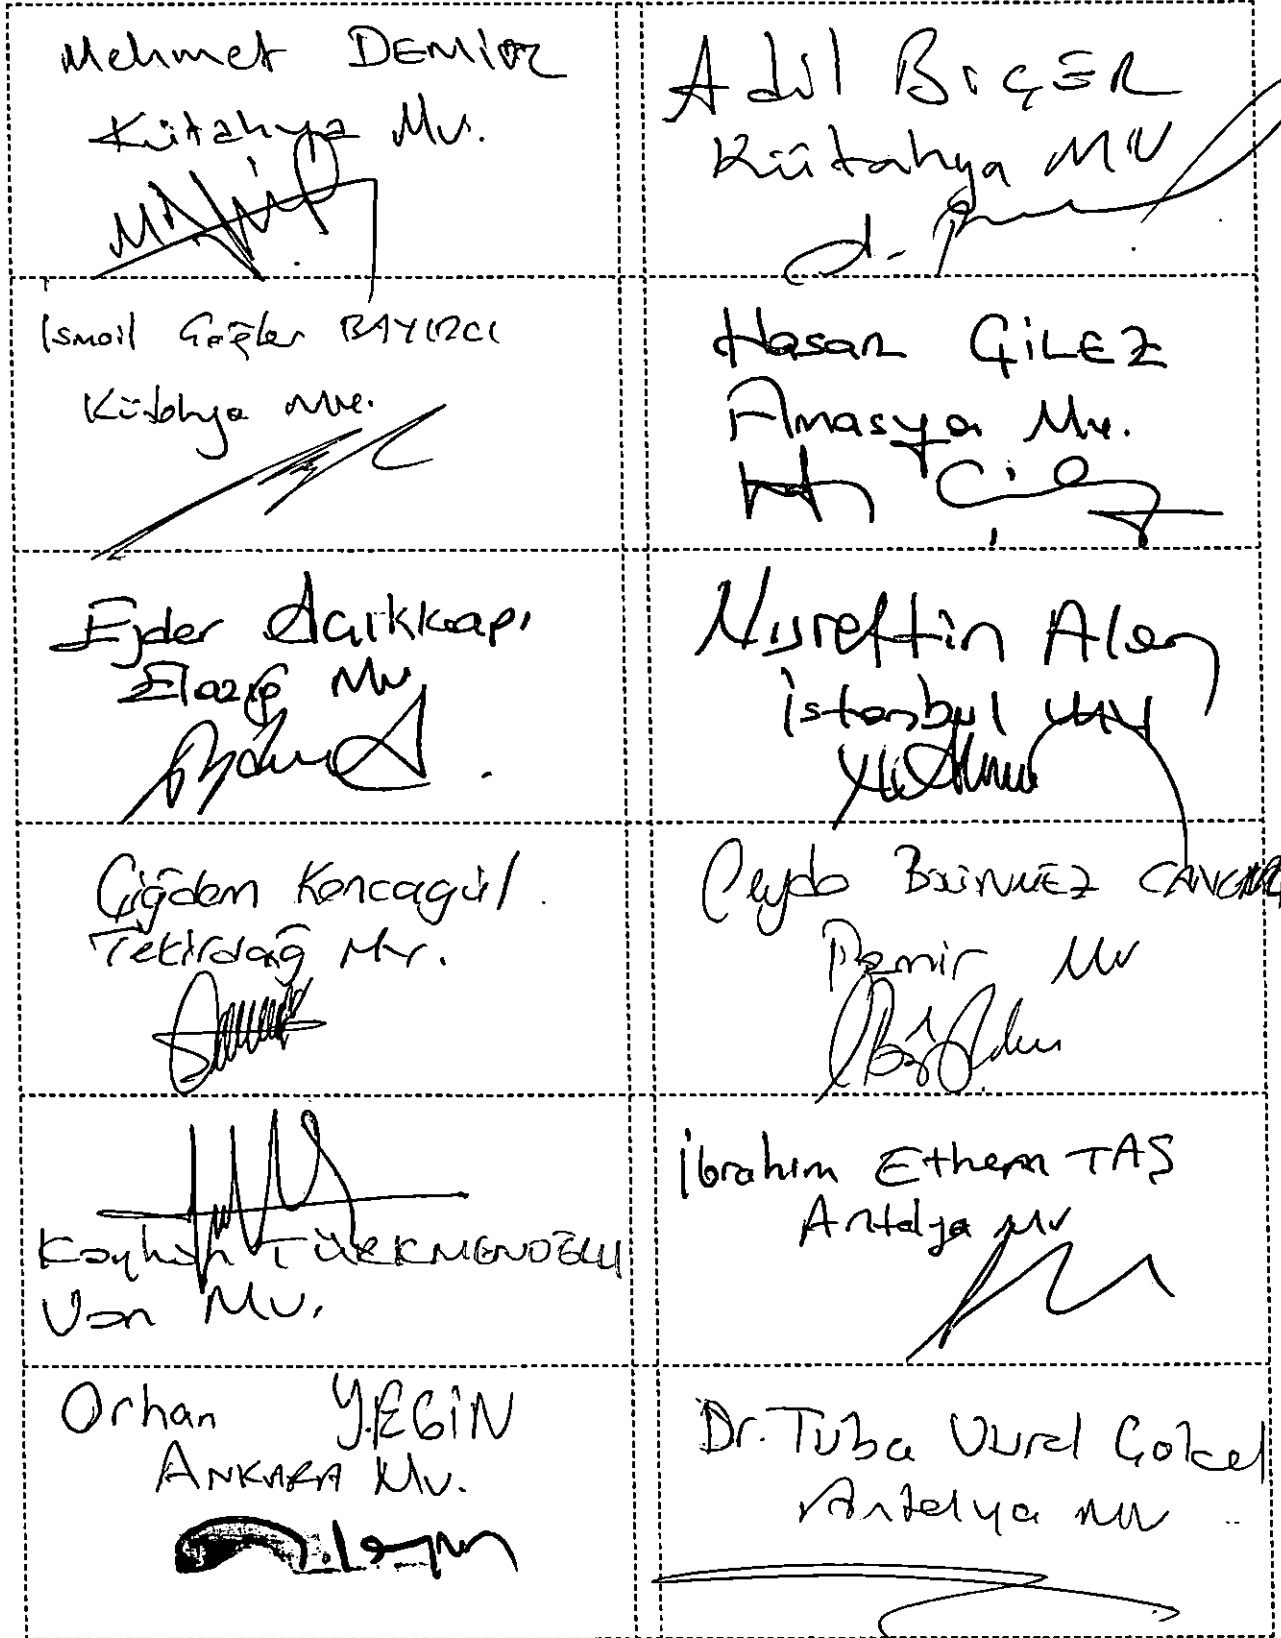 Mehmet DEMİR
Kütahya Mv.
Adil BİÇER
Kütahya MV
İsmail Çağlar BAYIRCI
Kütahya Mv.
Hasan ÇİLEZ
Amasya Mv.
Ejder Açıkkapı
Elazığ Mv
Nurettin Alan
İstanbul MV
Çiğdem Koncagül
Tekirdağ Mv.
Ceyda BÖLÜNMEZ ÇANKIRI
İzmir Mv
Kayhan TÜRKMENOĞLU
Van Mv.
İbrahim Ethem TAŞ
Antalya Mv
Orhan YEGİN
ANKARA Mv.
Dr. Tuba Vural Çokal
Antalya mv